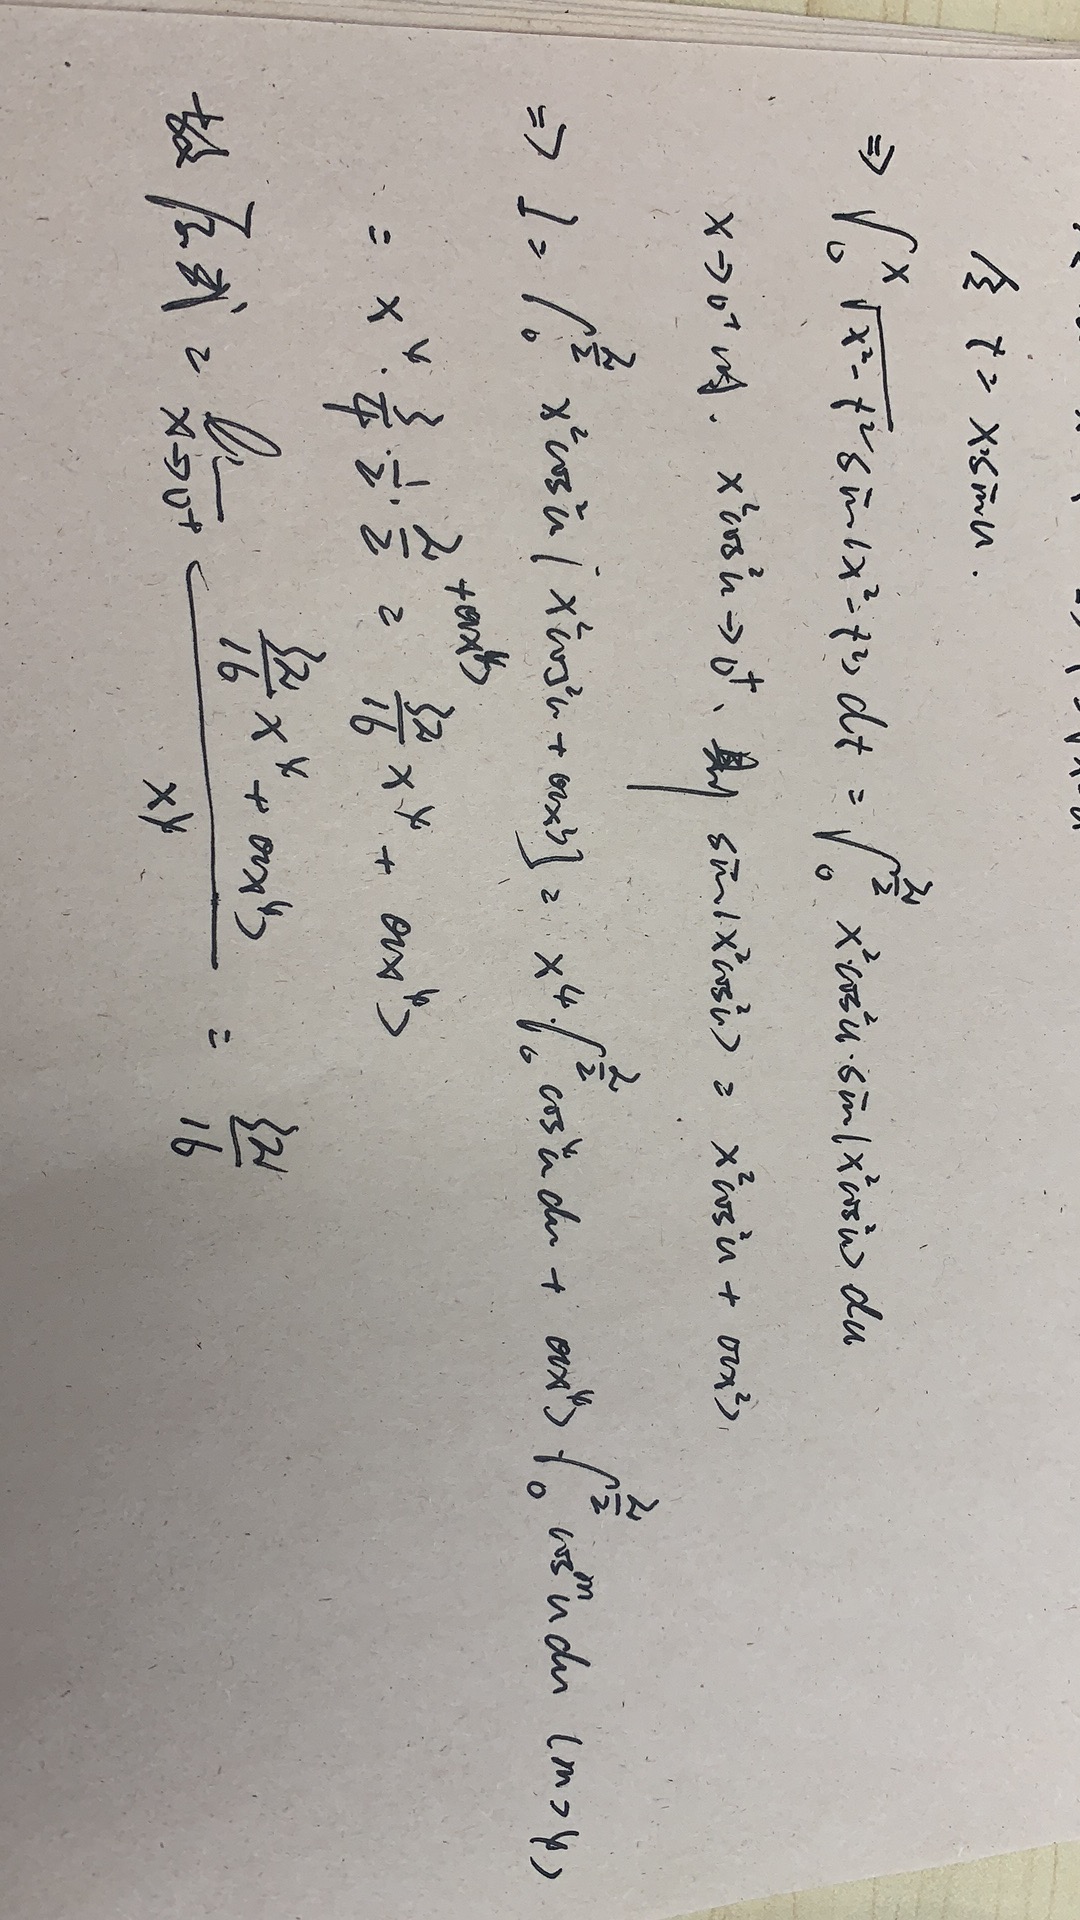 令 t = x·sinu.
⇒ ∫₀^x √(x²-t²) sin(x²-t²) dt = ∫₀^{π/2} x²·cos²u·sin(x²cos²u) du
x→0⁺时. x²cos²u→0⁺、则 sin(x²cos²u) = x²cos²u + o(x²).
⇒ I = ∫₀^{π/2} x²cos²u [x²cos²u + o(x²)] = x⁴·∫₀^{π/2} cos⁴u du + o(x⁴)·∫₀^{π/2} cos^m u du (m>4)
= x⁴·3/4·1/2·π/2 + o(x⁴) = 3π/16 x⁴ + o(x⁴)
故 原式 = lim_{x→0⁺} (3π/16 x⁴ + o(x⁴))/x⁴ = 3π/16